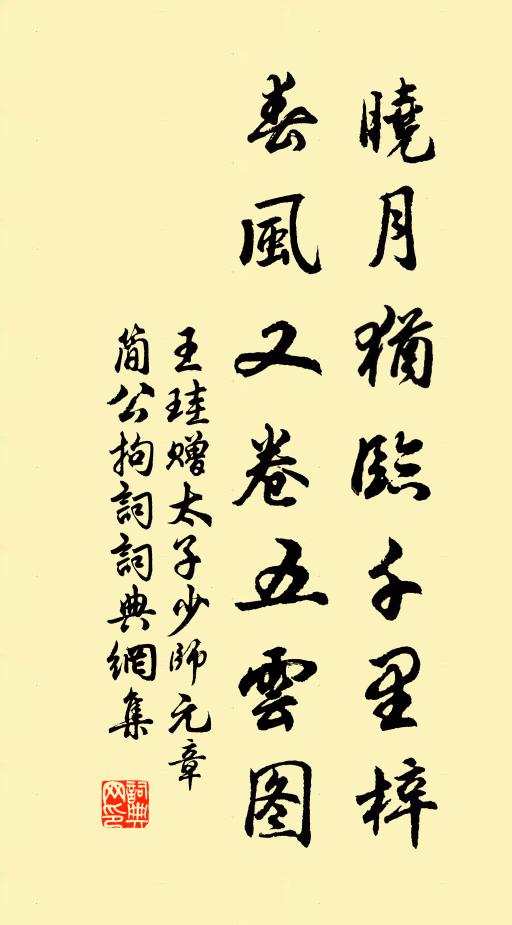 曉月猶臨千里梓
春風又卷五雲图
王珪赠太子少師元章
簡公拘詞詞典網集
詞典
网印